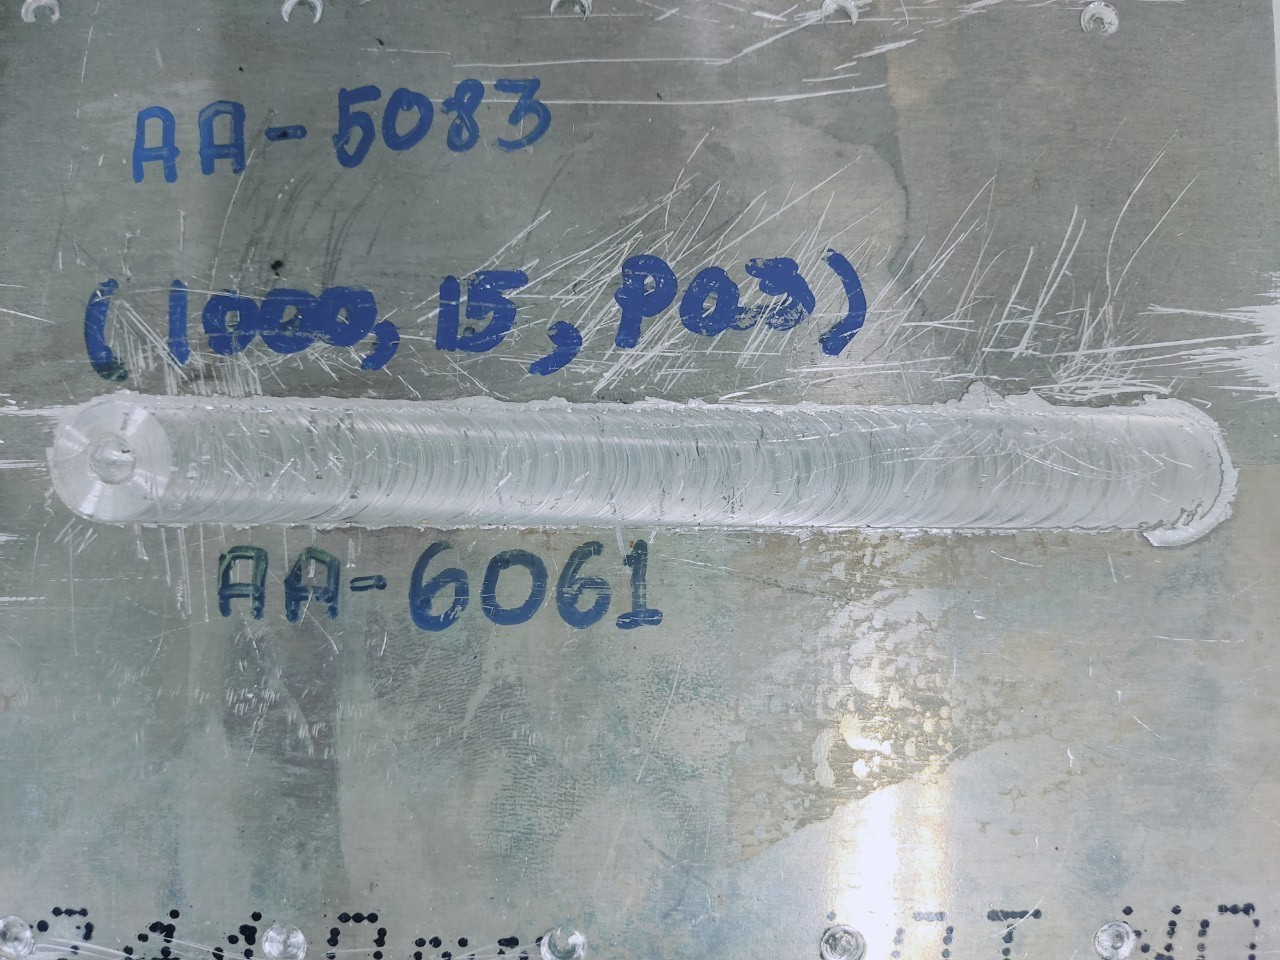 AA-5083
(1000, 15, P03)
AA-6061